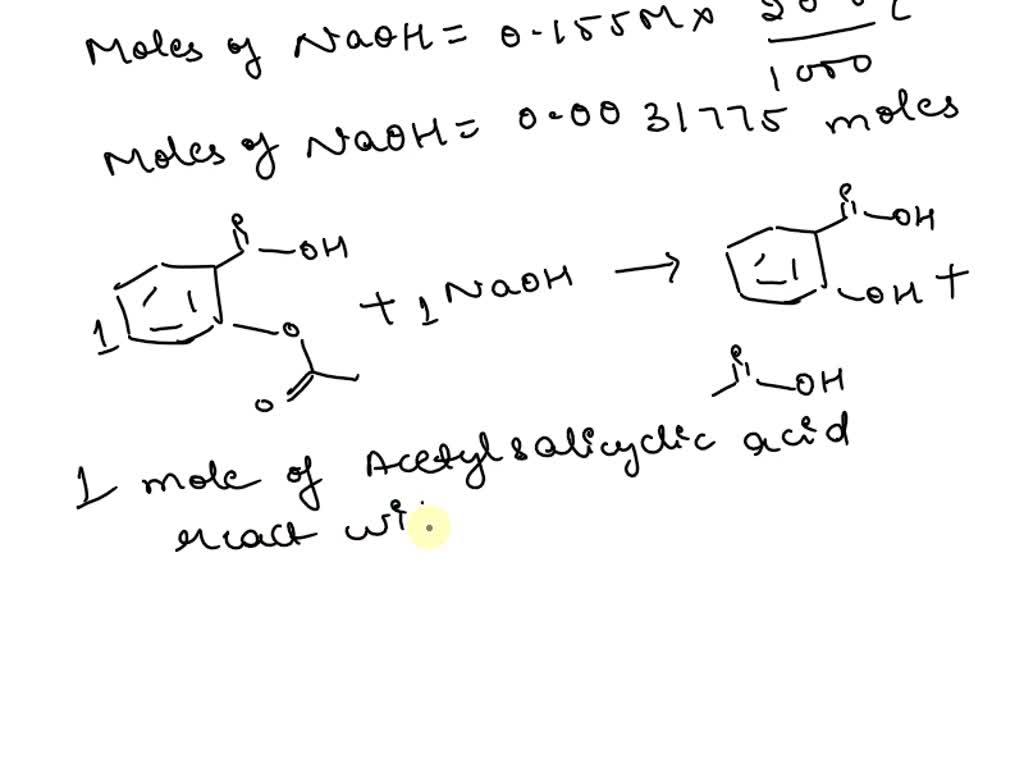 Moles of NaOH = 0.155M ×
1000
Moles of NaOH = 0.0031775 moles
O
OH
1
O
O
+ 1 NaOH →
O
OH
OH +
O
OH
1 mole of Acetylsalicyclic acid
react wi